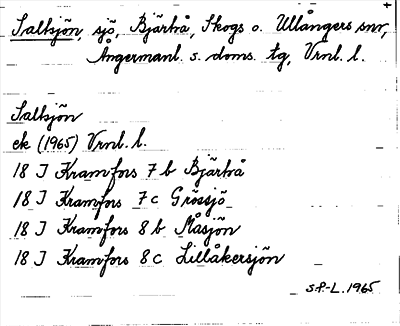 Saltsjön, sjö, Bjärtrå, Skogs o. Ullångers snr,
Ångermanl. s. doms. tg, Vrnl. l.
Saltsjön
ek (1965) Vrnl. l.
18 J Kramfors 7 b Bjärtrå
18 J Kramfors 7 c Grössjö
18 J Kramfors 8 b Måsjön
18 J Kramfors 8 c Lillåkersjön
S.P.-L. 1965